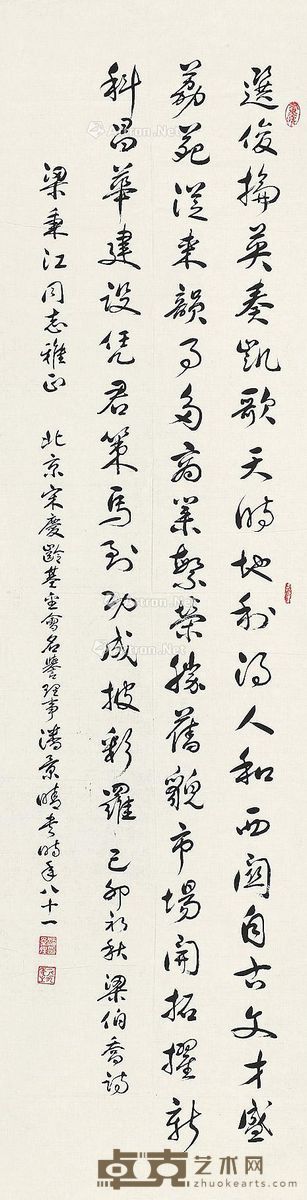 選俊掄英奏凱歌天時地利得人和西關自古文才盛
荔苑從來韻事多商業繁榮勝舊貌市場開拓擢新
科昌華建設凭君策馬到功成披彩羅 己卯初秋 梁伯喬詩
梁秉江同志雅正 北京宋慶齡基金會名譽理事潘景晴書時年八十一
卓克艺术网
www.zhuokearts.com